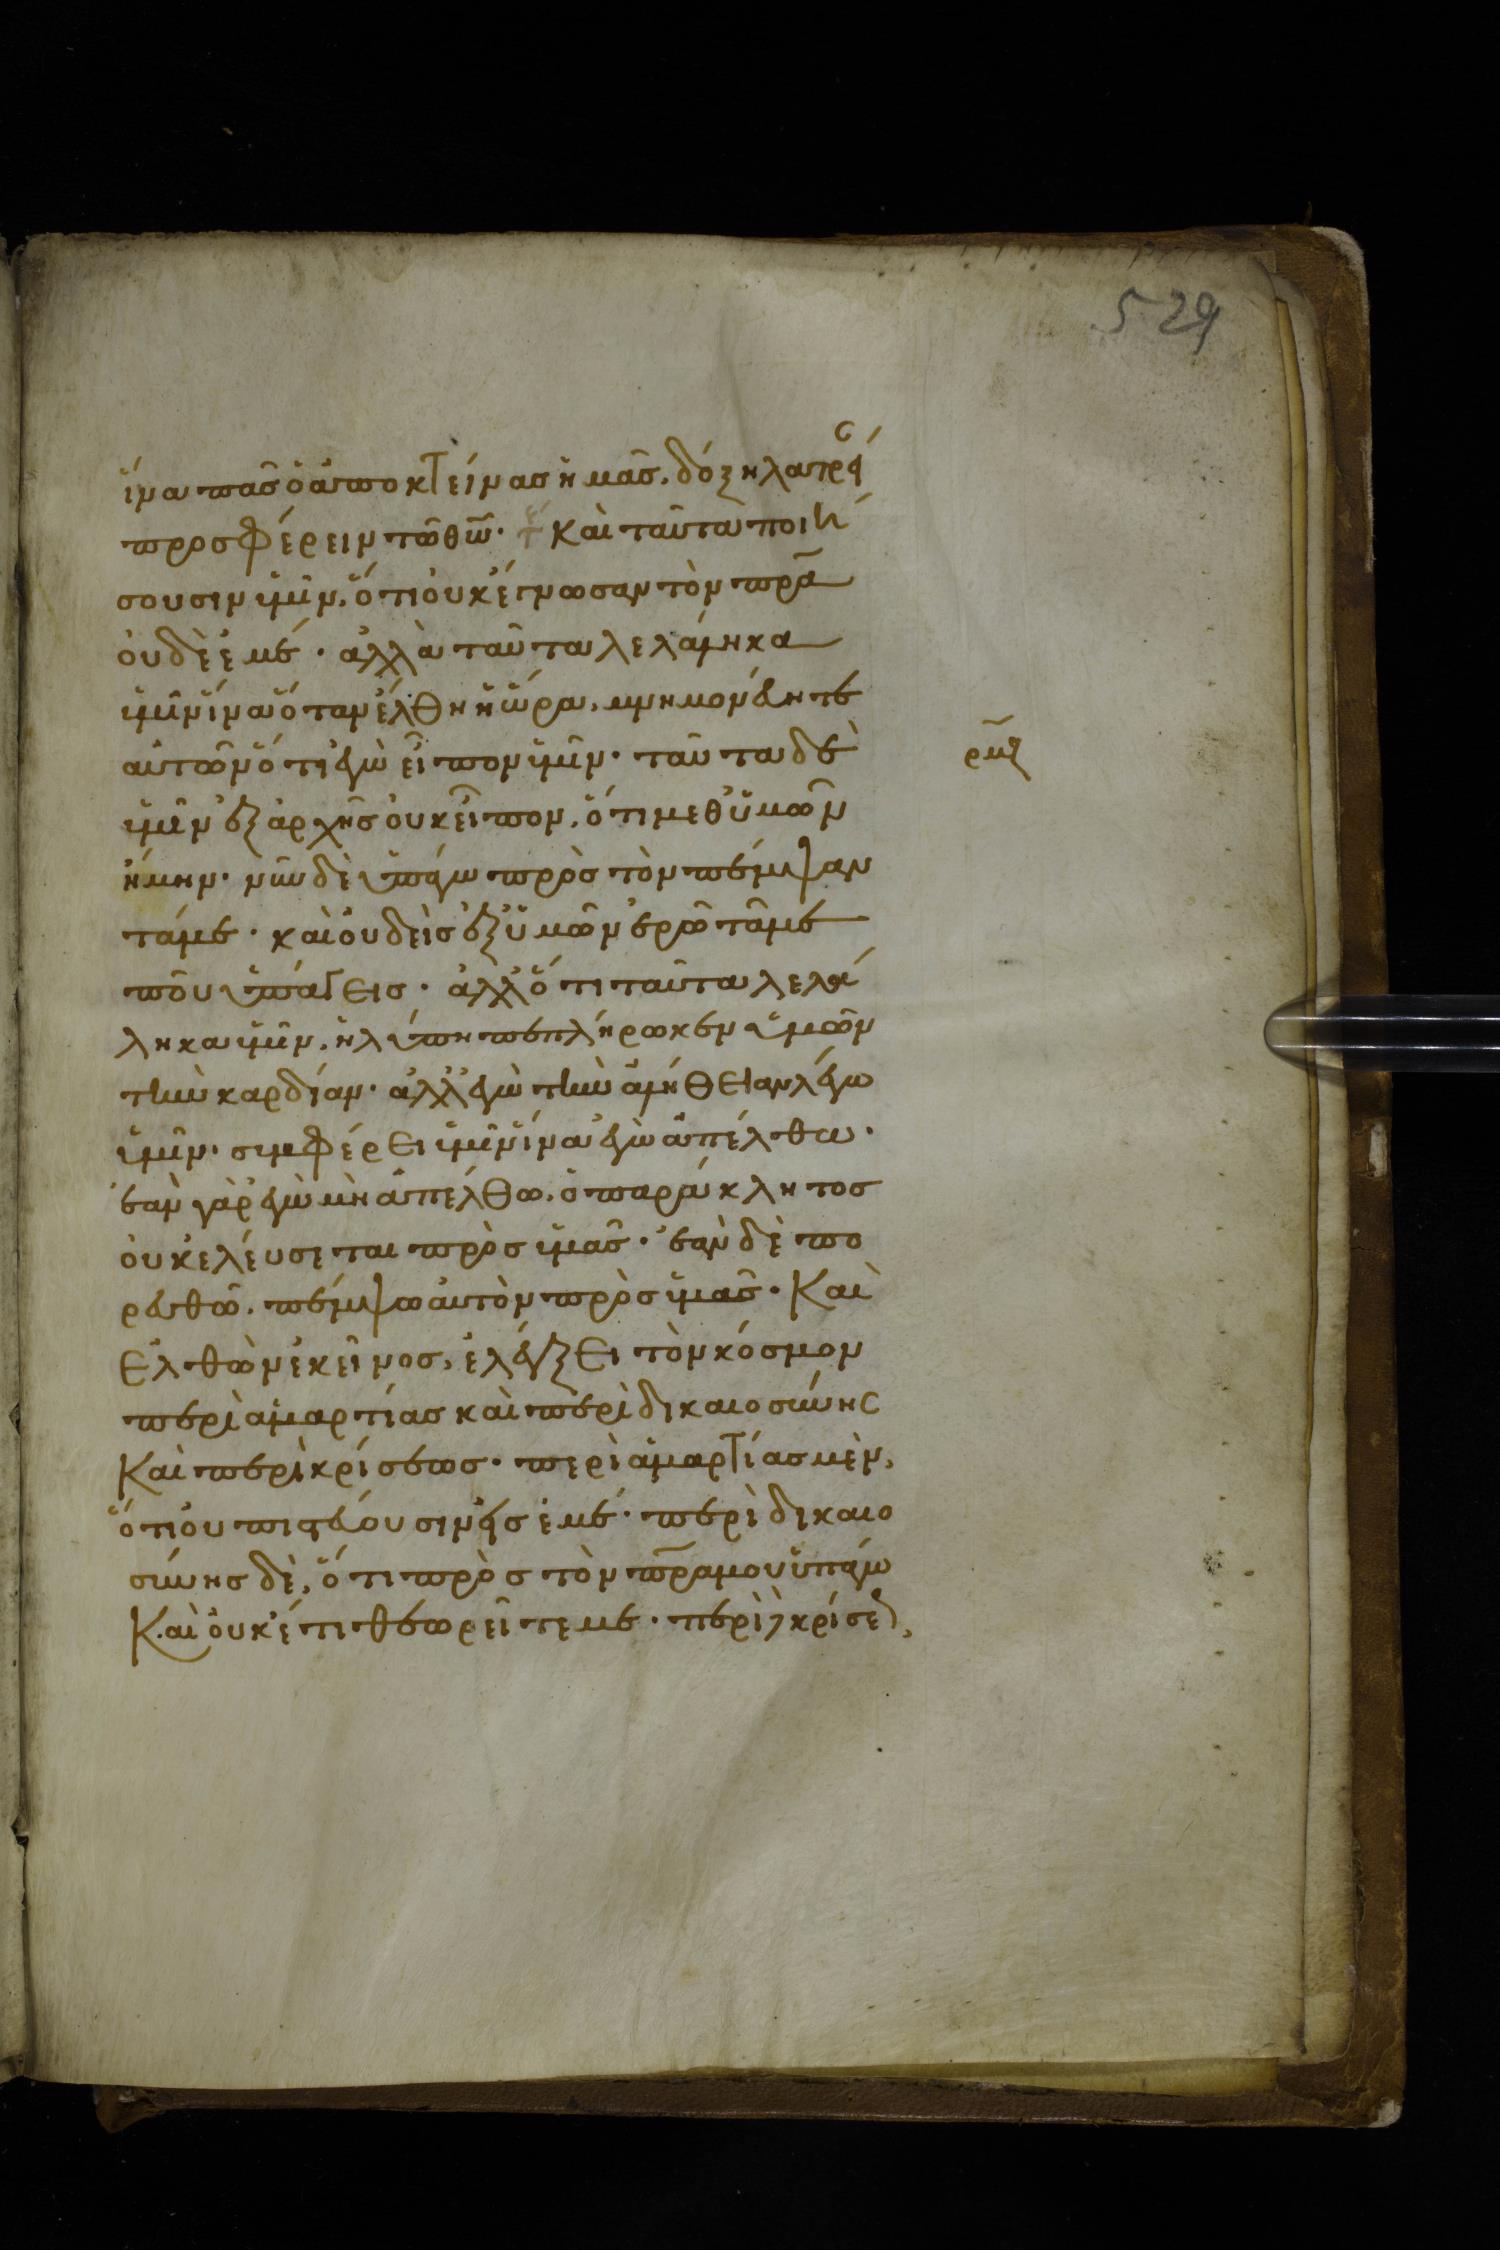 529
ἵνα πᾶς ὁ ἀποκτείνας ἡμᾶς, δόξη λατρεί
προσφέρειν τῶ θῶ. Καὶ ταῦτα ποιή
σουσιν ὑμῖν, ὅτι οὐκ ἔγνωσαν τὸν πρα
οὐδὲ ἐμέ. ἀλλὰ ταῦτα λελάληκα
ὑμῖν ἵνα ὅταν ἔλθη ἡ ὥρα, μνημονεύητε
αὐτῶν ὅτι ἐγὼ εἶπον ὑμῖν. ταῦτα δὲ
ὑμῖν ἐξ ἀρχῆς οὐκ εἶπον, ὅτι μεθ ὑμῶν
ἤμην. νῦν δὲ ὑπάγω πρὸς τὸν πέμψαν
τά με. καὶ οὐδεὶς ἐξ ὑμῶν ἐρωτᾶ με
ποῦ ὑπάγεις. ἀλλ ὅτι ταῦτα λελά
ληκα ὑμῖν, ἡ λύπη πεπλήρωκεν ὑμῶν
τὴν καρδίαν. ἀλλ ἐγὼ τὴν ἀλήθειαν λέγω
ὑμῖν. συμφέρει ὑμῖν ἵνα ἐγὼ ἀπέλθω.
ἐὰν γὰρ ἐγὼ μὴ ἀπέλθω, ὁ παράκλητος
οὐκ ελέυσεται πρὸς ὑμᾶς. ἐὰν δὲ πο
ρευθῶ, πέμψω αὐτὸν πρὸς ὑμᾶς. Καὶ
ἐλθὼν ἐκεῖνος, ἐλέγξει τὸν κόσμον
περὶ ἁμαρτίας καὶ περὶ δικαιοσύνης
Καὶ περὶ κρίσεως. περὶ ἁμαρτίας μὲν,
ὅτι οὐ πιστεύουσιν εἰς ἐμέ. περὶ δικαιο
σύνης δὲ, ὅτι πρὸς τὸν πρα μου ὑπάγω
Καὶ οὐκ έτι θεωρεῖτε με. περὶ κρίσε,